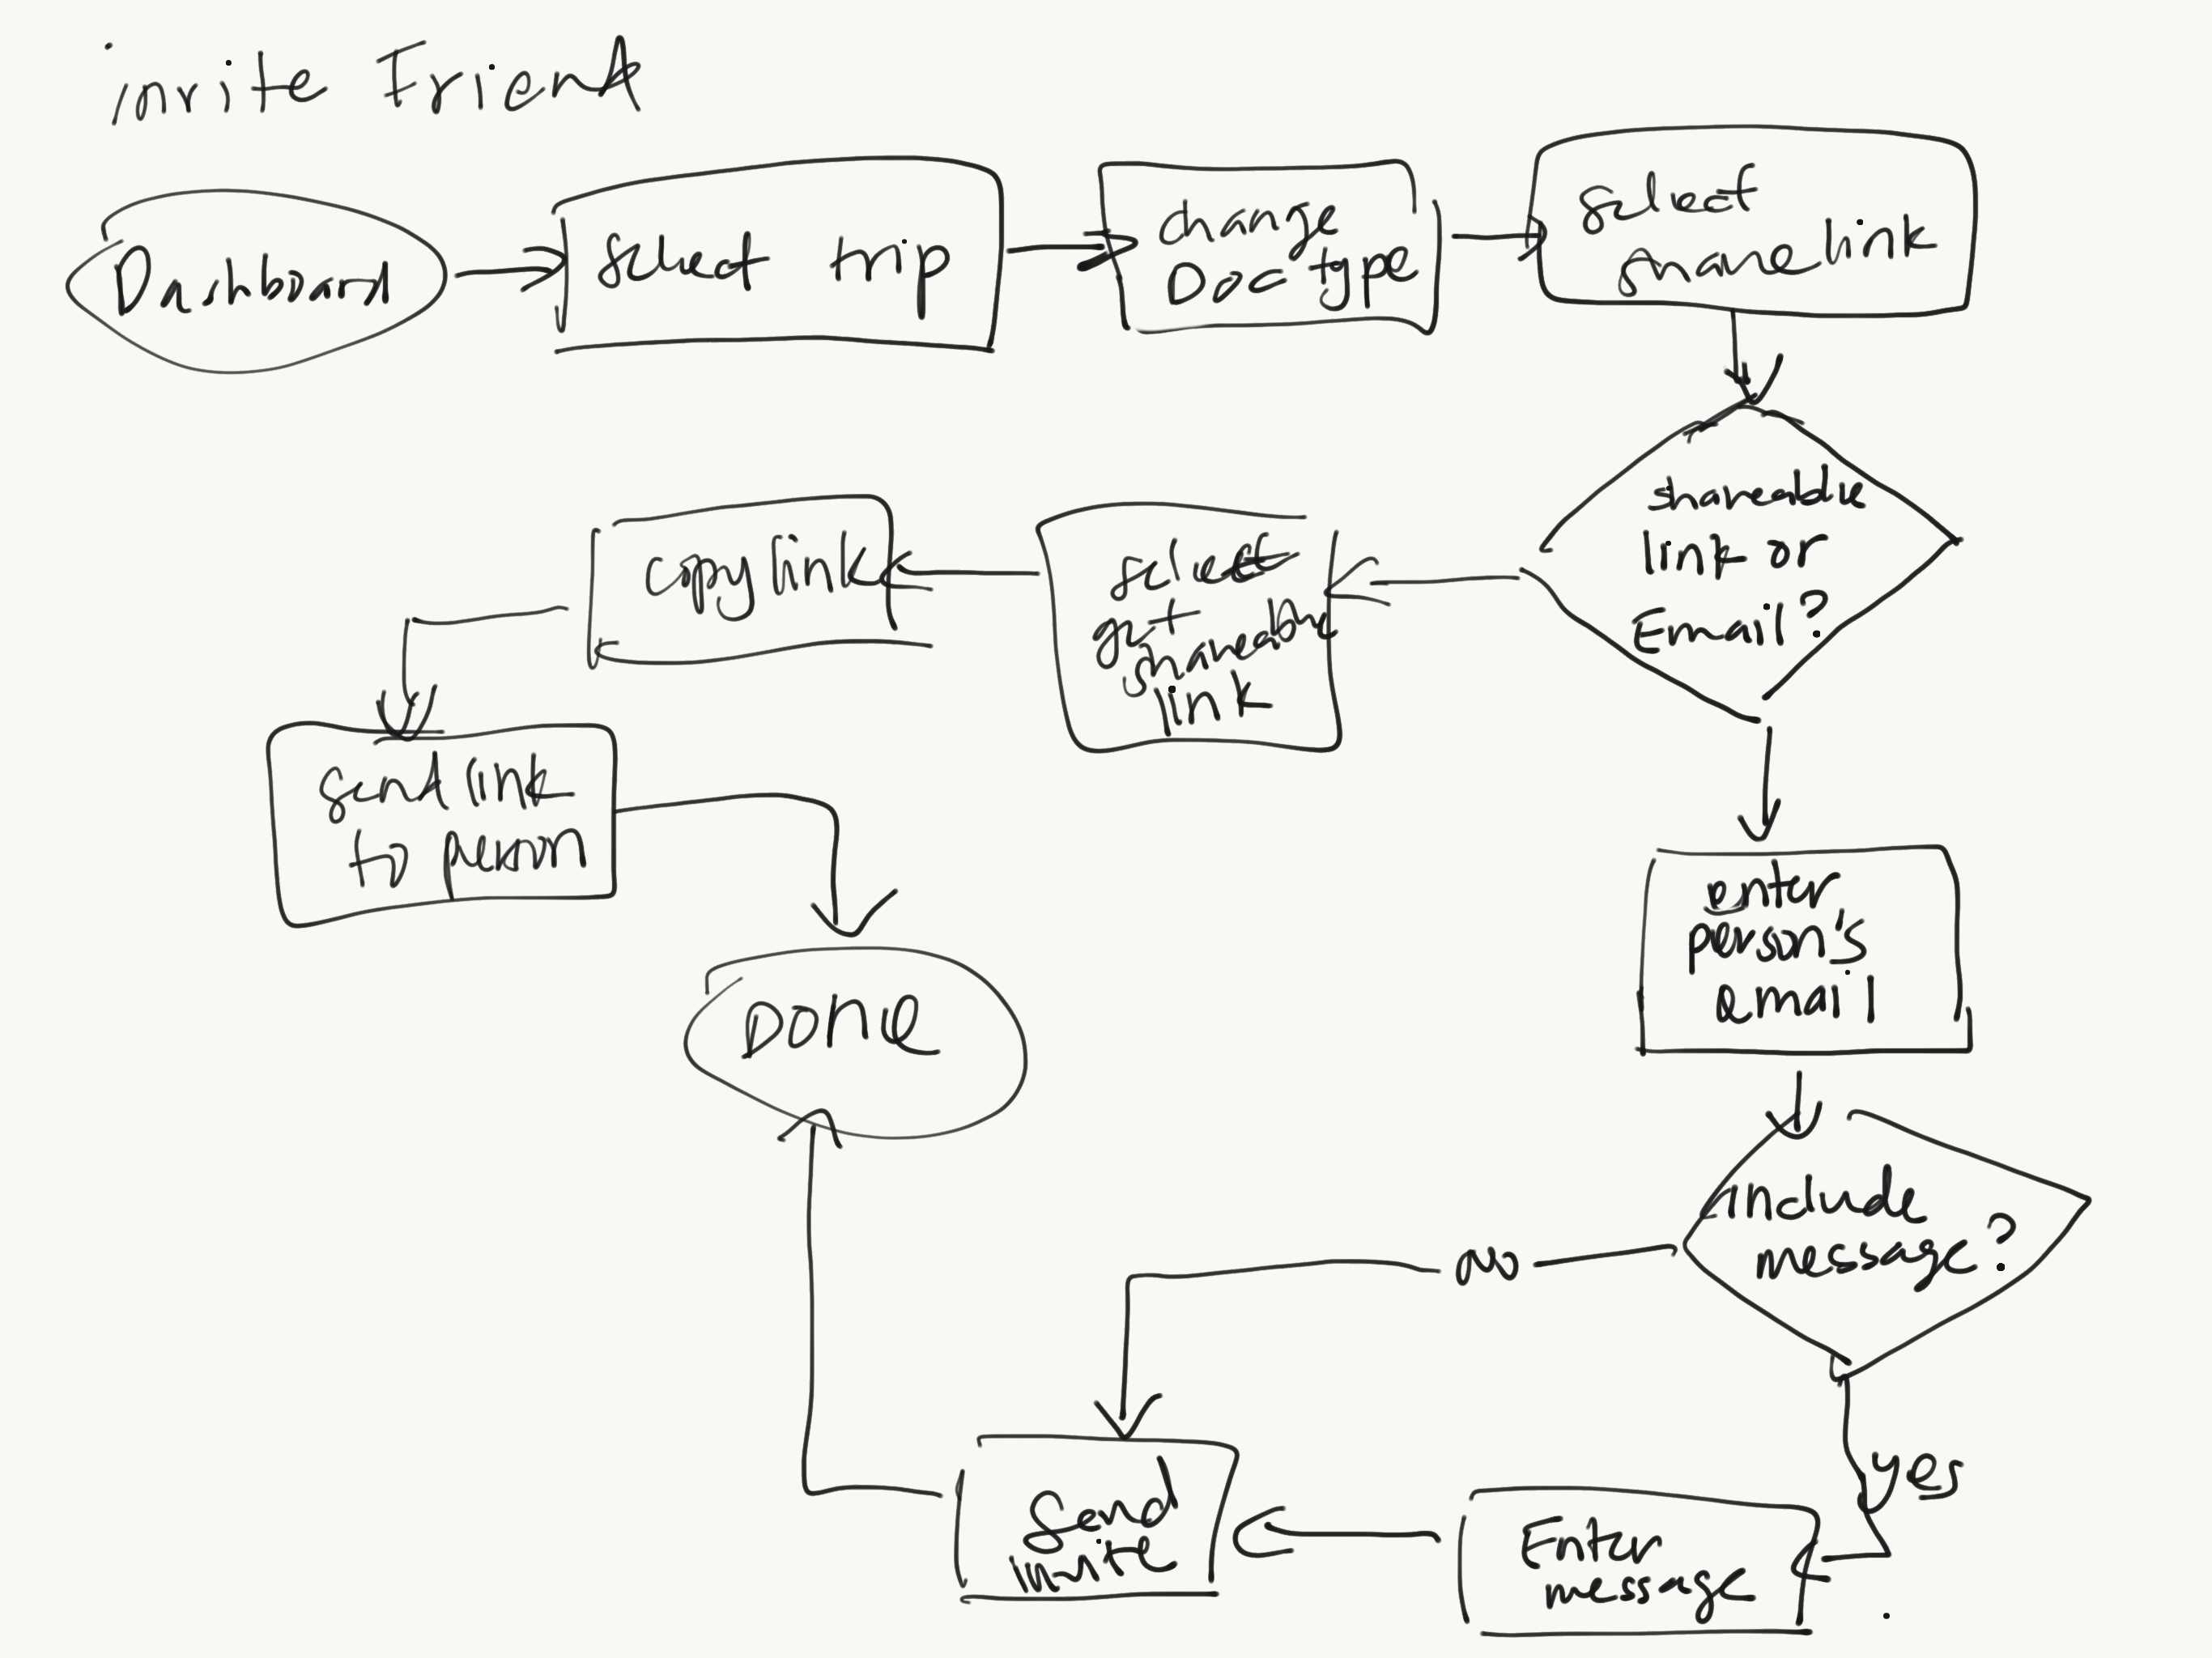 invite Friend
Dashboard
select trip
change
Doc type
select
share link
shareable
link or
Email?
select
get
shareable
link
copy link
send link
to person
Done
enter
person's
email
include
message?
no
yes
Enter
message
Send
invite